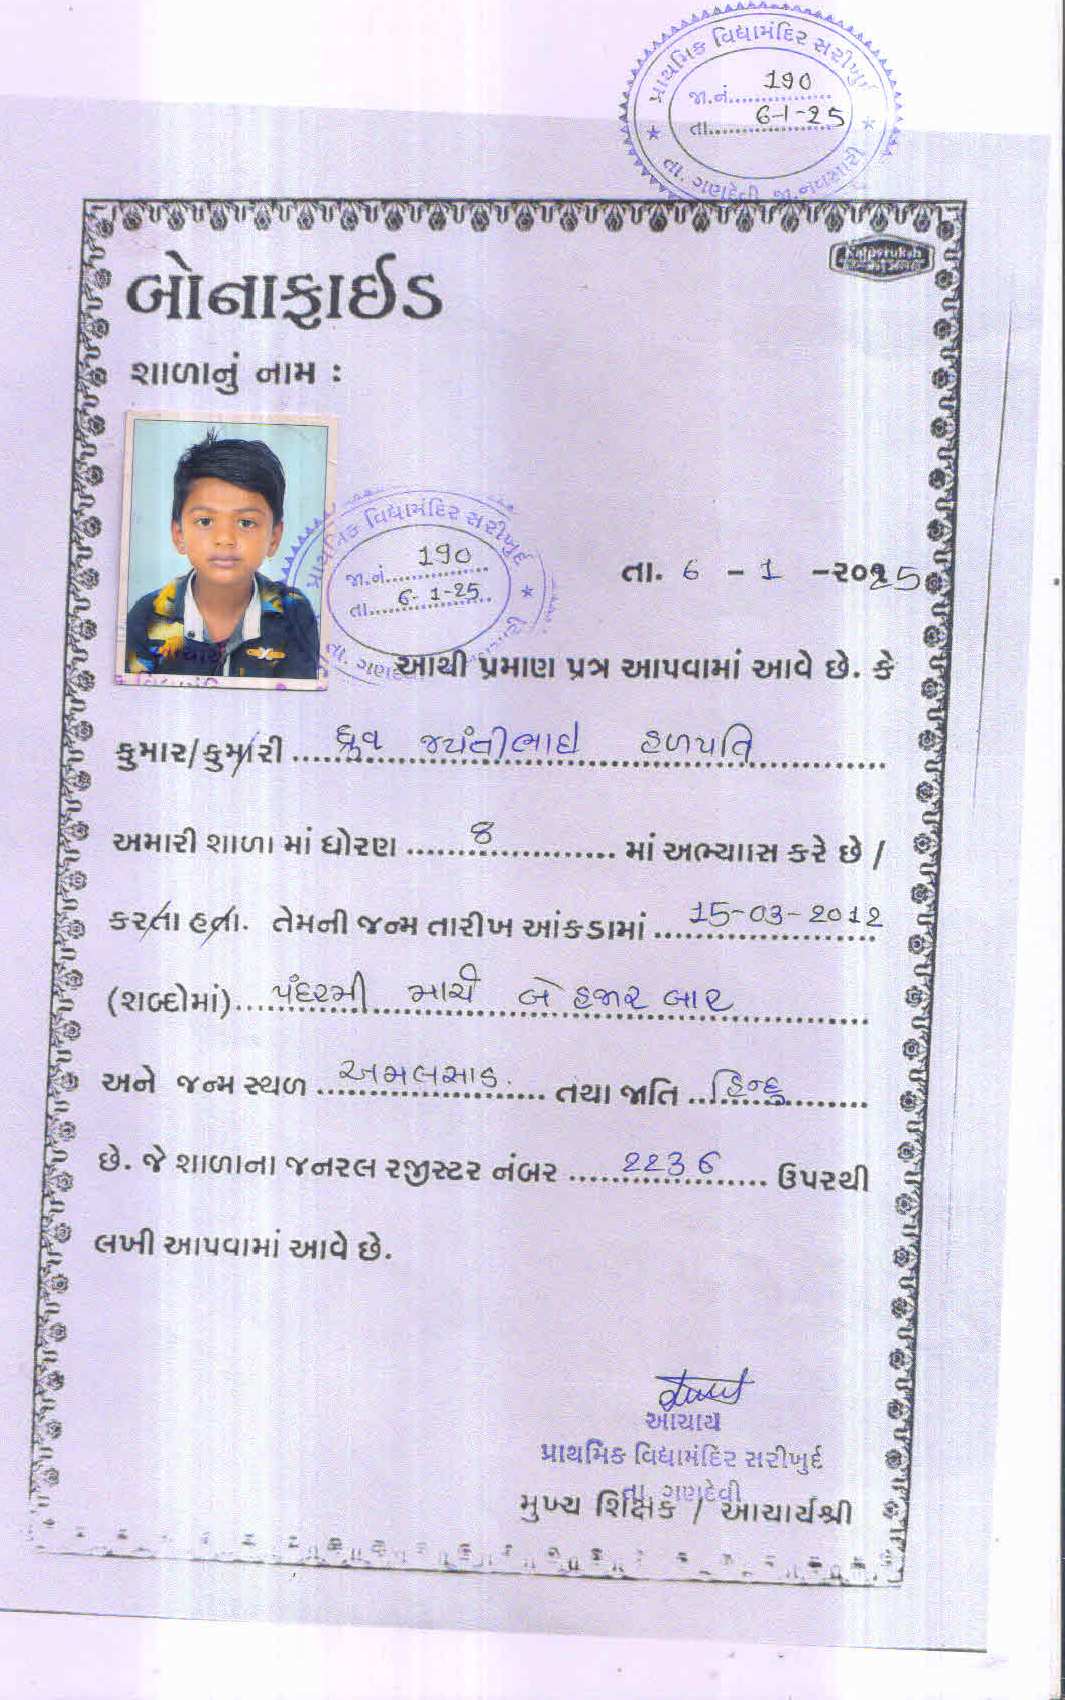 પ્રાથમિક વિદ્યામંદિર સરીખુર્દ
જા.નં. 190
તા. 6-1-25
તા. ગણદેવી જી.નવસારી
Kalpvruksh
બોનાફાઈડ
શાળાનું નામ :
પ્રાથમિક વિદ્યામંદિર સરીખુર્દ
જા.નં. 190
તા. 6-1-25
તા. ગણદેવી
આચાર્ય
તા. 6 - 1 -૨૦૧25
આથી પ્રમાણ પત્ર આપવામાં આવે છે. કે
કુમાર/કુમારી ધ્રુવ જયંતીભાઇ હળપતિ
અમારી શાળા માં ધોરણ 8 માં અભ્યાસ કરે છે /
કરતા હતા. તેમની જન્મ તારીખ આંકડામાં 15-03-2012
(શબ્દોમાં) પંદરમી માર્ચ બે હજાર બાર
અને જન્મ સ્થળ અમલસાડ. તથા જાતિ હિન્દુ
છે. જે શાળાના જનરલ રજીસ્ટર નંબર 2236 ઉપરથી
લખી આપવામાં આવે છે.
આચાર્ય
પ્રાથમિક વિદ્યામંદિર સરીખુર્દ
તા. ગણદેવી
મુખ્ય શિક્ષક / આચાર્યશ્રી